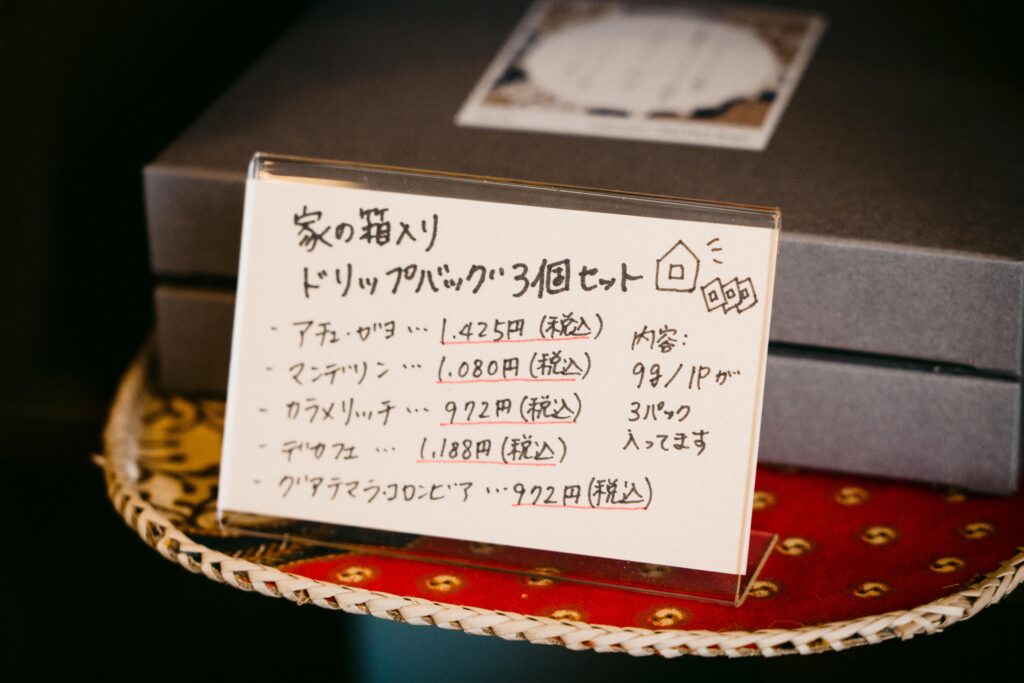 家の箱入り
ドリップバッグ 3個セット
- アチェ・ガヨ … 1.425円(税込)
- マンデリン … 1.080円(税込)
- カラメリッチ … 972円(税込)
- デカフェ … 1,188円(税込)
- グアテマラ・コロンビア … 972円(税込)
内容:
9g/1Pが
3パック
入ってます